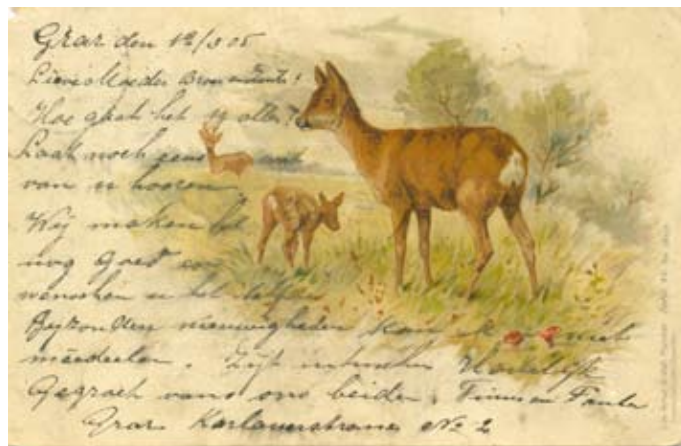 Graz den 12/3 05
Lieve Moeder
Hoe gaat het u allen?
Laat noch eens wat
van u hooren
Wij maken het
nog goed en
wenschen u het zelfde
Byzonders nieuwigheden kan ik u niet
meedeelen. Zijt intusschen Hartelijk
Gegroet van ons beiden. Tinus en Paula
Graz Karlauerstrasse No 2